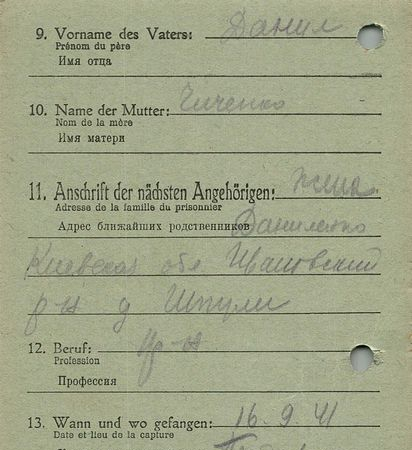 9. Vorname des Vaters: Данил
Prénom du père
Имя отца
10. Name der Mutter: Чиченко
Nom de la mère
Имя матери
11. Anschrift der nächsten Angehörigen: жена
Adresse de la famille du prisonnier
Адрес ближайших родственников Даниленко
Киевская обл
р-н д Шпули
12. Beruf: кр-н
Profession
Профессия
13. Wann und wo gefangen: 16.9.41
Date et lieu de la capture